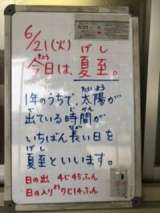 6/21(火)
今日は、夏至。
きょう げし
1年のうちで、太陽が
たいよう
出ている時間が
じかん
いちばん長い日を
なが ひ
夏至といいます。
げし
日の出 4じ45ふん
日の入り 7じ14ふん